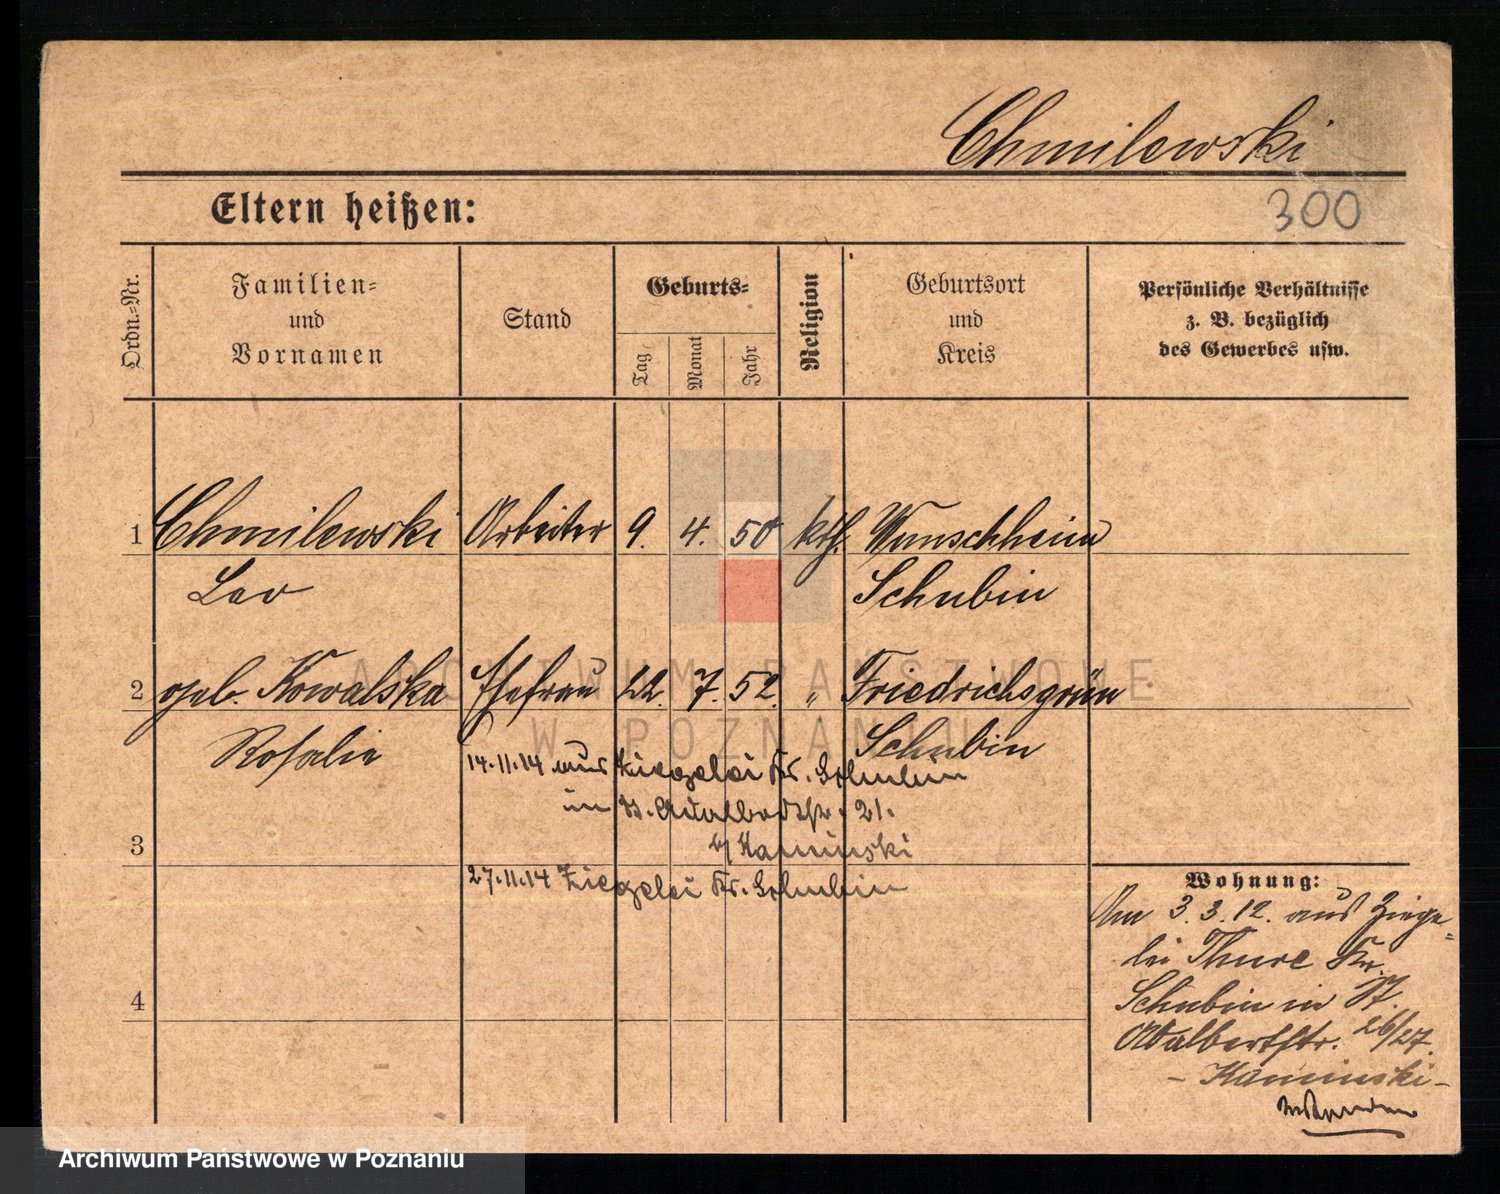 Chmilewski
Eltern heißen:
300
Ordn.-Nr.
Familien-
und
Vornamen
Stand
Geburts-
Tag
Monat
Jahr
Religion
Geburtsort
und
Kreis
Persönliche Verhältnisse
z. B. bezüglich
des Gewerbes usw.
1 Chmilewski Arbeiter 9. 4. 50 kth. Wunschheim
Leo Schubin
2 geb. Kowalska Ehefrau 22. 7. 52. " Friedrichsgrün
Rosalie Schubin
14.11.14 aus Ziegelei Kr. Schubin
in St. Adalbertstr. 21.
b/ Kaminski
3
27.11.14 Ziegelei Kr. Schubin
4
Wohnung:
Am 3.3.12. aus Ziege=
lei Thure Kr.
Schubin in St.
Adalbertstr. 26/27.
- Kaminski -
ARCHIWUM PAŃSTWOWE
W POZNANIU
Archiwum Państwowe w Poznaniu